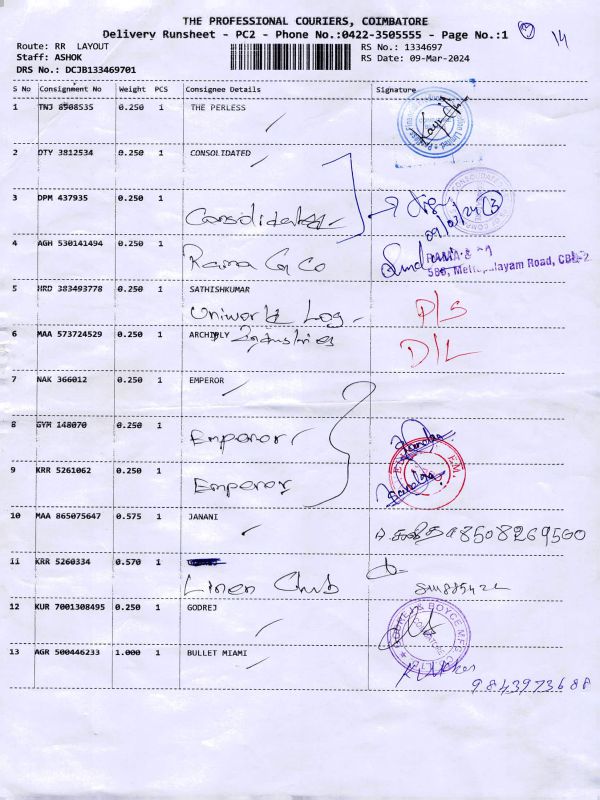 THE PROFESSIONAL COURIERS, COIMBATORE
Delivery Runsheet - PC2 - Phone No.:0422-3505555 - Page No.:1
14
Route: RR LAYOUT
RS No.: 1334697
Staff: ASHOK
RS Date: 09-Mar-2024
DRS No.: DCJB133469701
S No Consignment No Weight PCS Consignee Details Signature
1 TNJ 8508535 0.250 1 THE PERLESS
2 DTY 3812534 0.250 1 CONSOLIDATED
3 DPM 437935 0.250 1 Consolidated
09/03/24
4 AGH 530141494 0.250 1 Rama & Co
RAMA &
Road, CBE-2
5 HRD 383493778 0.250 1 SATHISHKUMAR
Uniworld Log P/S
6 MAA 573724529 0.250 1 ARCHIPLY Industries D/L
7 NAK 366012 0.250 1 EMPEROR
8 GYM 148070 0.250 1 Emperor
9 KRR 5261062 0.250 1 Emperor
10 MAA 865075647 0.575 1 JANANI
8508269500
11 KRR 5260334 0.570 1
Linen Club
12 KUR 7001308495 0.250 1 GODREJ
& BOYCE MFG
13 AGR 500446233 1.000 1 BULLET MIAMI
9843973688